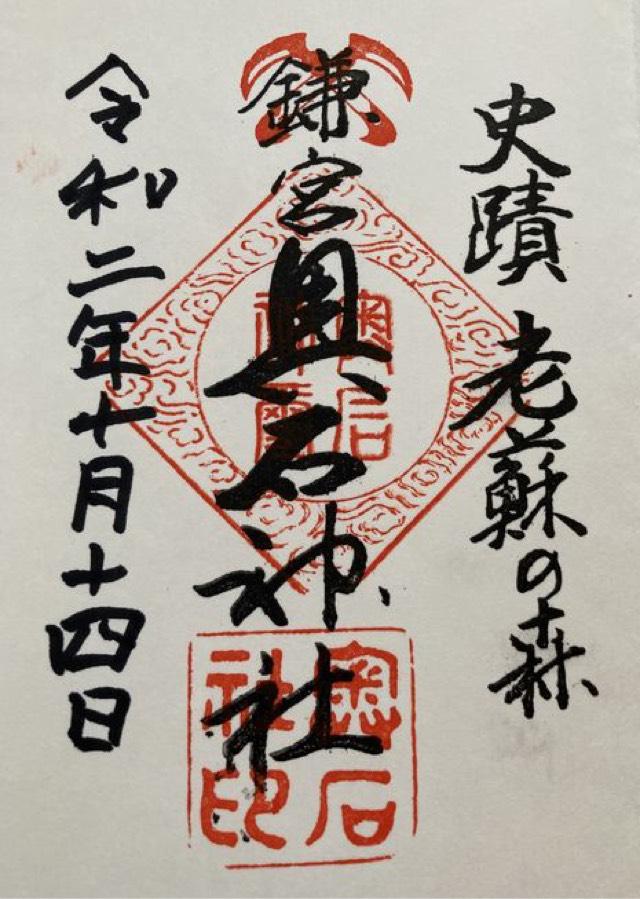 史蹟 老蘇の森
鎌宮 奥石神社
令和二年十月十四日
奥石
社印